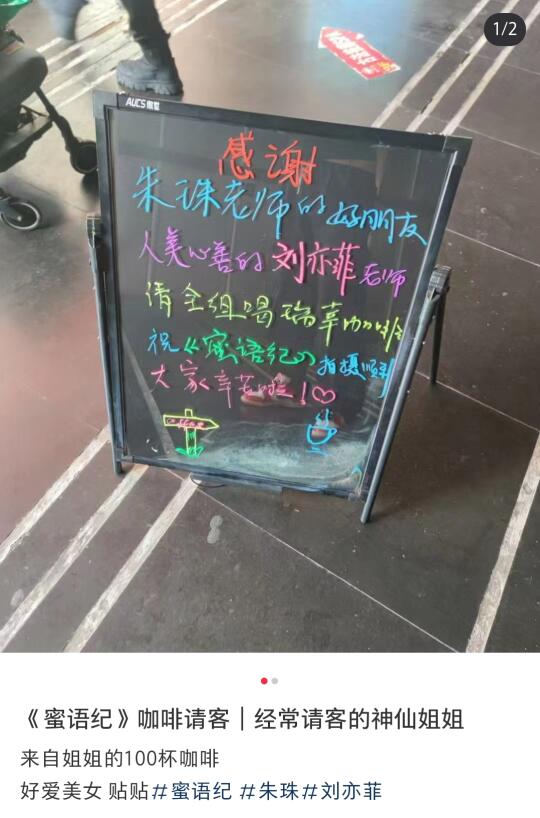 1/2
AUCS
感谢
朱珠老师的好朋友
人美心善的刘亦菲老师
请全组喝瑞幸咖啡
祝《蜜语纪》拍摄顺利
大家辛苦啦！♡
《蜜语纪》咖啡请客｜经常请客的神仙姐姐
来自姐姐的100杯咖啡
好爱美女 贴贴#蜜语纪 #朱珠#刘亦菲